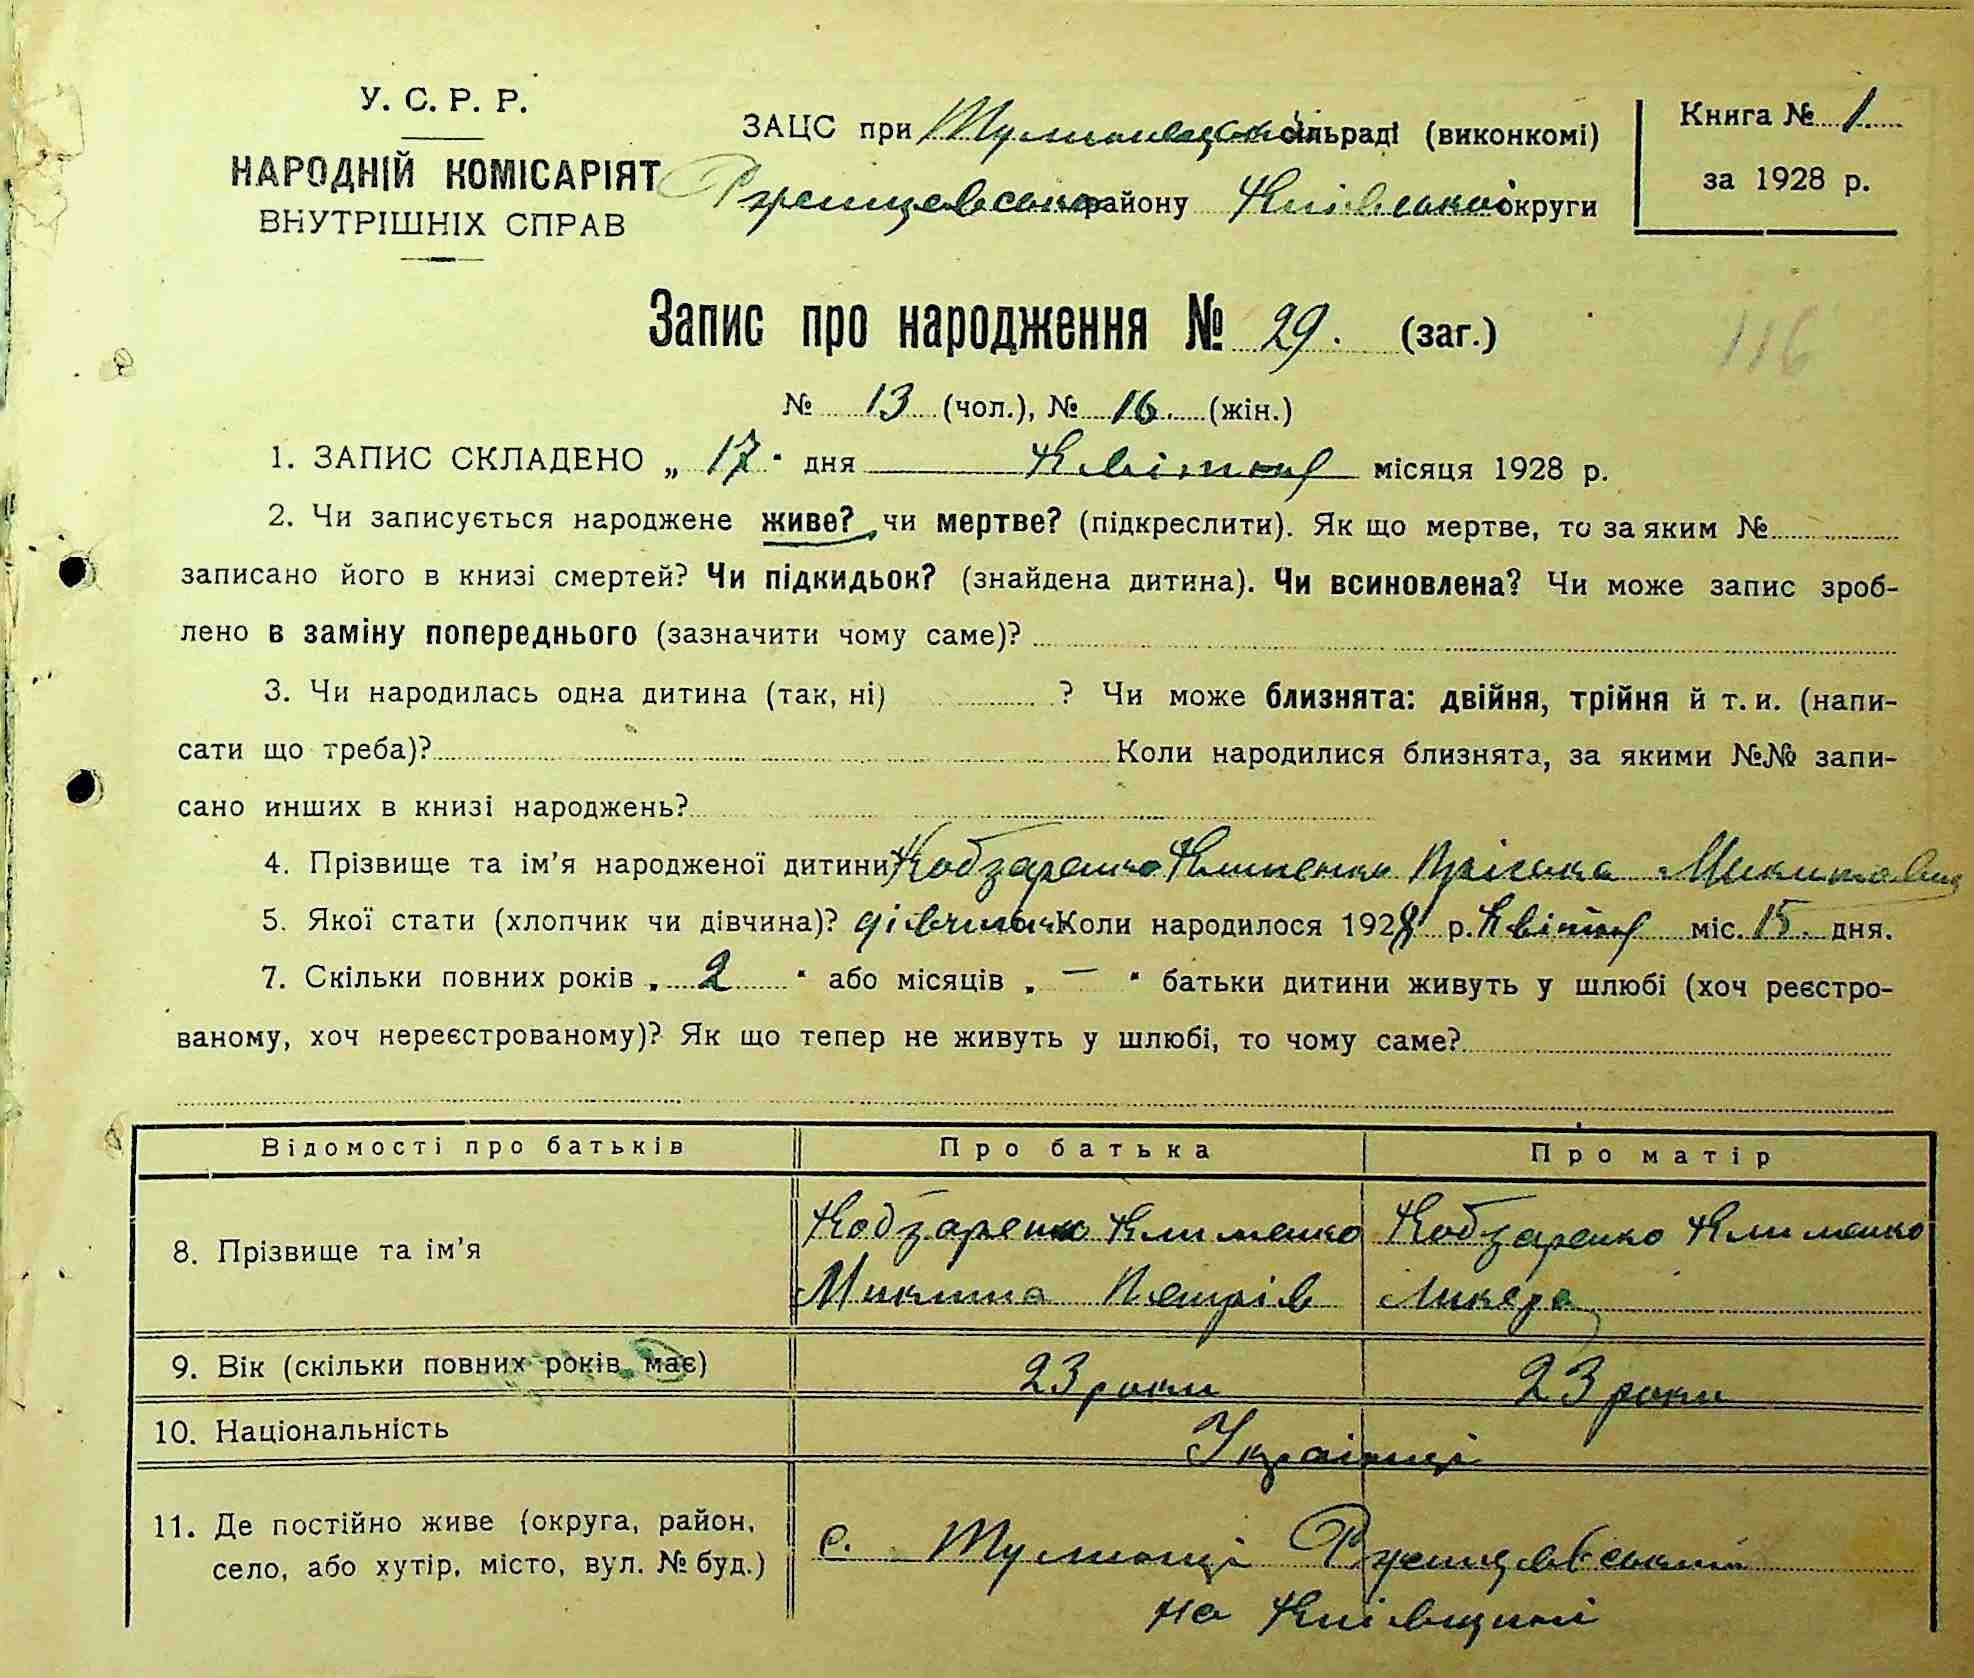 У. С. Р. Р.
НАРОДНІЙ КОМІСАРІЯТ
ВНУТРІШНІХ СПРАВ
ЗАЦС при сільраді (виконкомі)
району Київської округи
Книга № 1.
за 1928 р.
Запис про народження № 29. (заг.)
116
№ 13 (чол.), № 16. (жін.)
1. ЗАПИС СКЛАДЕНО „ 17 " дня Квітня місяця 1928 р.
2. Чи записується народжене живе? чи мертве? (підкреслити). Як що мертве, то за яким №
записано його в книзі смертей? Чи підкидьок? (знайдена дитина). Чи всиновлена? Чи може запис зроб-
лено в заміну попереднього (зазначити чому саме)?
3. Чи народилась одна дитина (так, ні) ? Чи може близнята: двійня, трійня й т. и. (напи-
сати що треба)? Коли народилися близнята, за якими №№ запи-
сано инших в книзі народжень?
4. Прізвище та ім'я народженої дитини Кобзаренко Клименко Пріська
5. Якої стати (хлопчик чи дівчина)? дівчина Коли народилося 1928 р. Квітня міс. 15. дня.
7. Скільки повних років „ 2 " або місяців „ — " батьки дитини живуть у шлюбі (хоч реєстро-
ваному, хоч нереєстрованому)? Як що тепер не живуть у шлюбі, то чому саме?
Відомості про батьків Про батька Про матір
8. Прізвище та ім'я
Кобзаренко Клименко Кобзаренко Клименко
Микита Петрів Ликера
9. Вік (скільки повних років має) 23 роки 23 роки
10. Національність Українці
11. Де постійно живе (округа, район,
село, або хутір, місто, вул. № буд.)
с. Тулинці
на Київщині